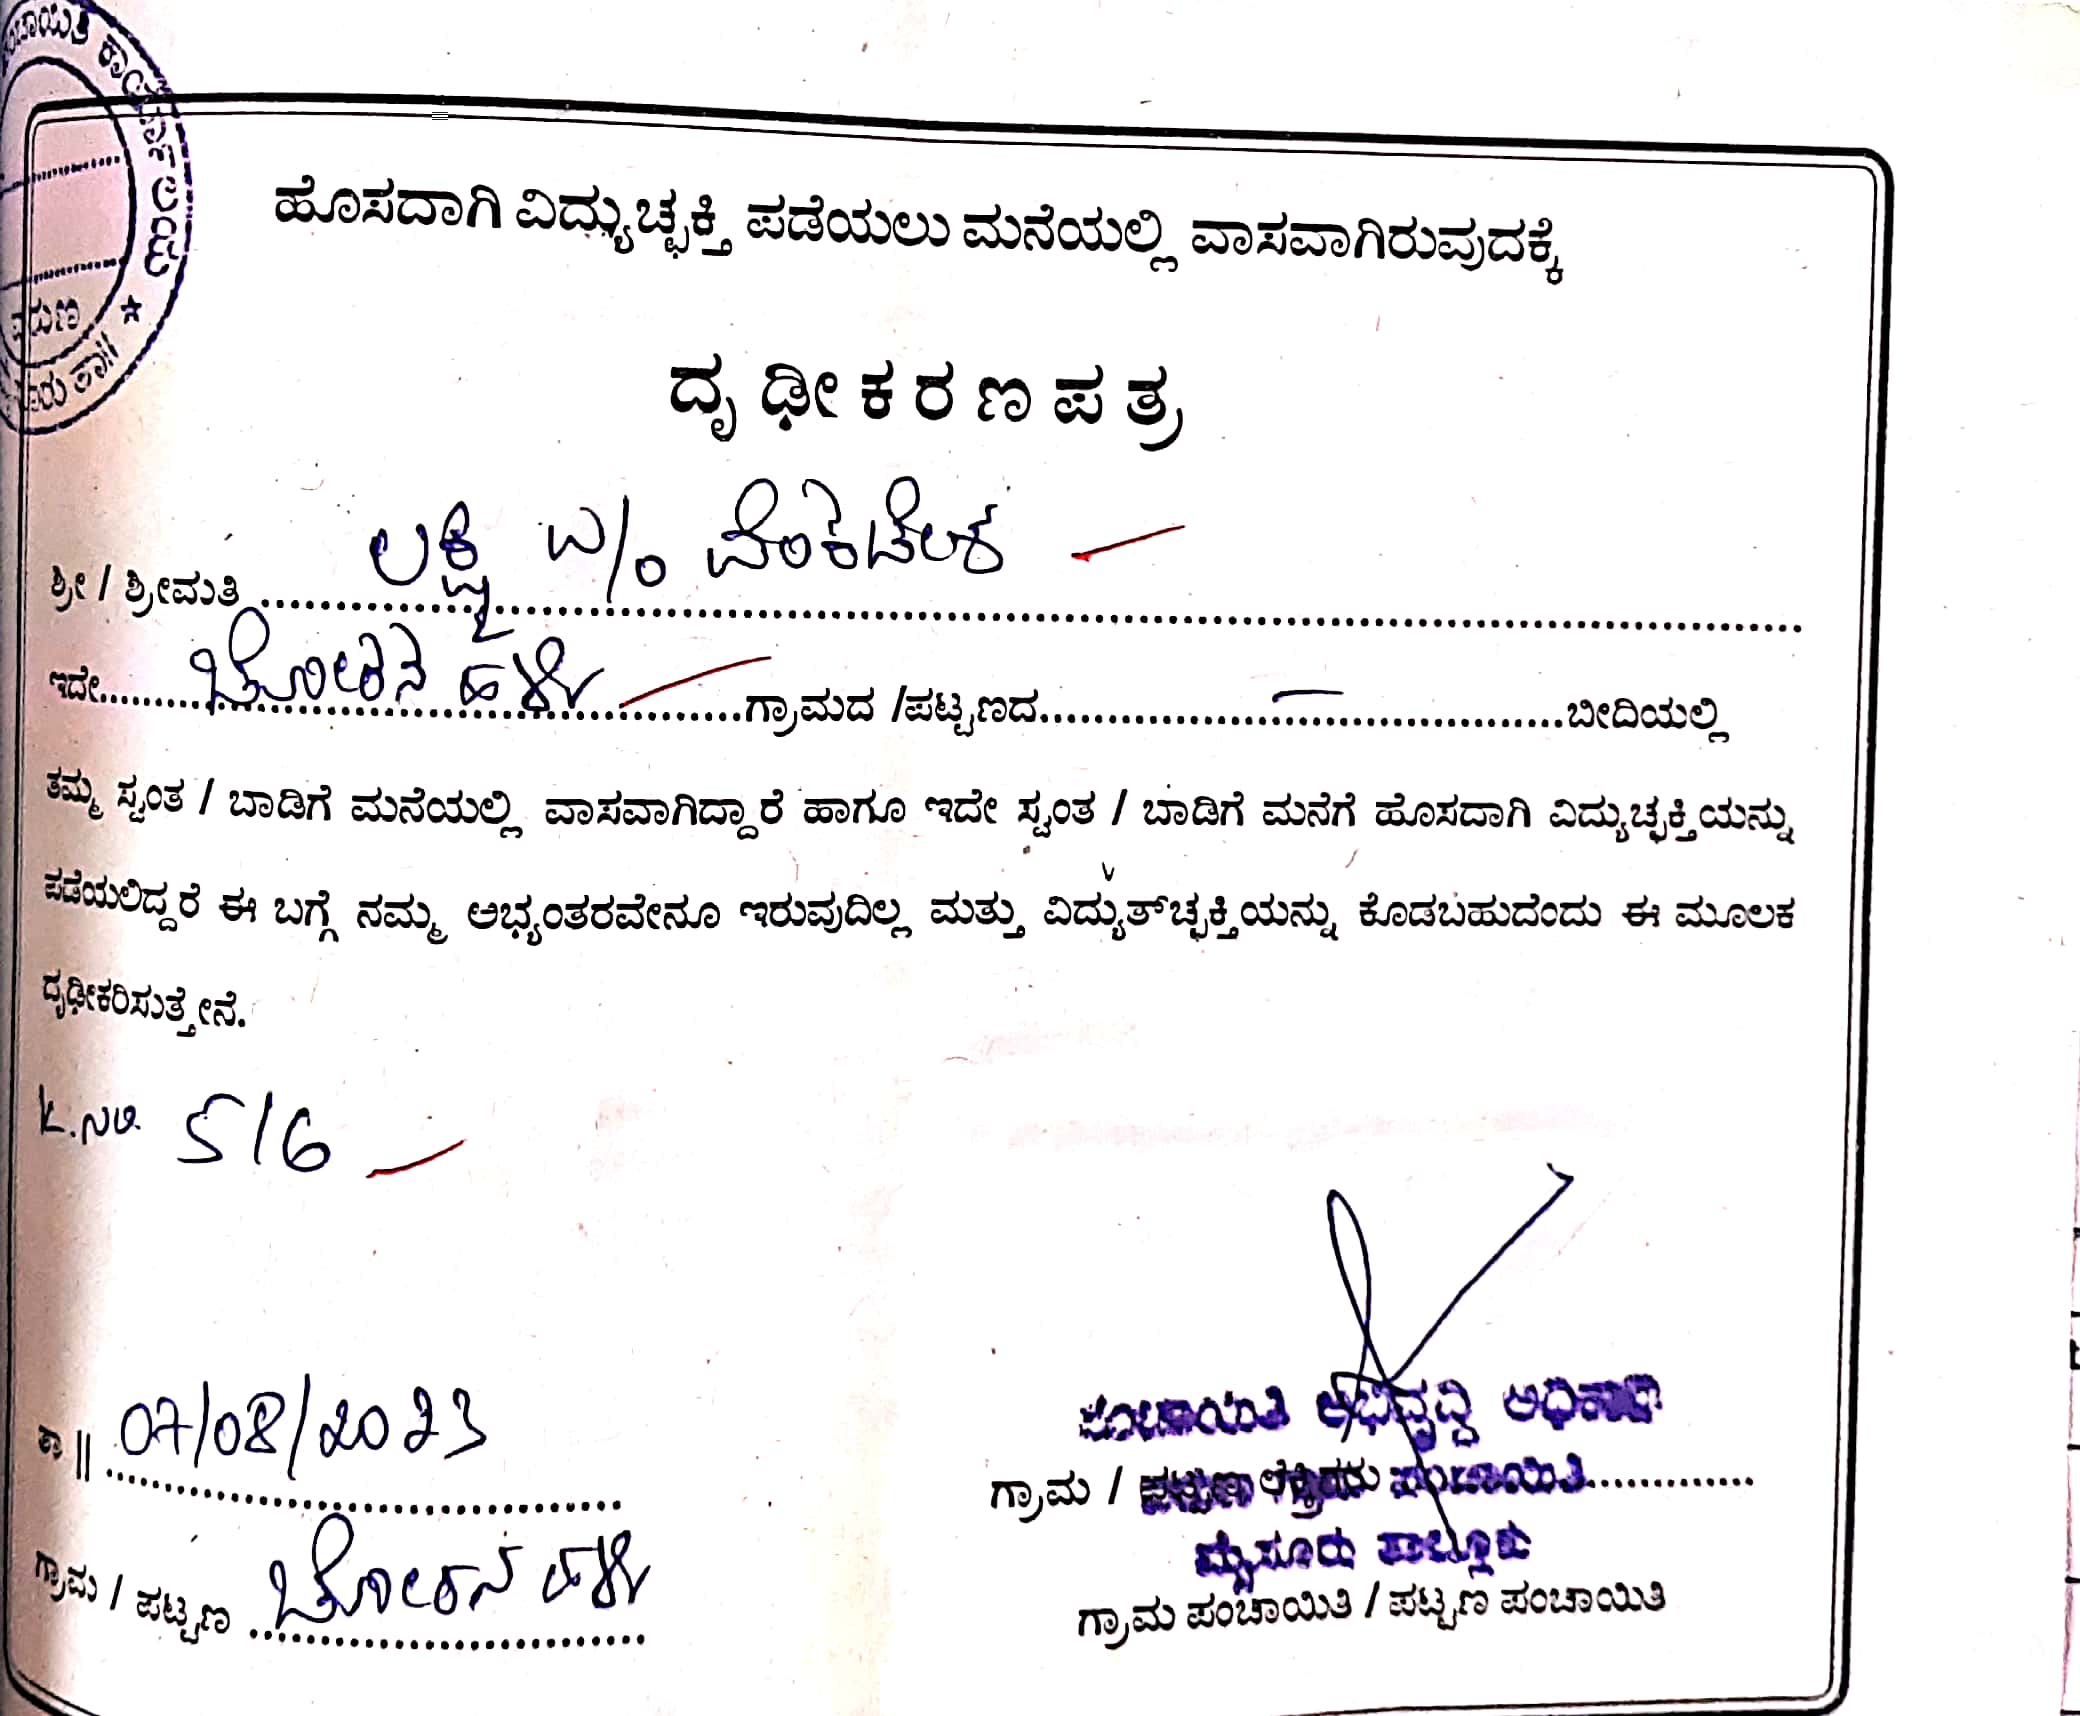 ಪಂಚಾಯಿತಿ ಕಾರ್ಯಾಲಯ
ವರುಣ
ಹೊಸದಾಗಿ ವಿದ್ಯುಚ್ಛಕ್ತಿ ಪಡೆಯಲು ಮನೆಯಲ್ಲಿ ವಾಸವಾಗಿರುವುದಕ್ಕೆ
ದೃಢೀಕರಣಪತ್ರ
ಶ್ರೀ / ಶ್ರೀಮತಿ ಲಕ್ಷ್ಮಿ W/o ವೆಂಕಟೇಶ
ಇದೇ ಚೋರನ ಹಳ್ಳಿ ಗ್ರಾಮದ /ಪಟ್ಟಣದ ಬೀದಿಯಲ್ಲಿ
ತಮ್ಮ ಸ್ವಂತ / ಬಾಡಿಗೆ ಮನೆಯಲ್ಲಿ ವಾಸವಾಗಿದ್ದಾರೆ ಹಾಗೂ ಇದೇ ಸ್ವಂತ / ಬಾಡಿಗೆ ಮನೆಗೆ ಹೊಸದಾಗಿ ವಿದ್ಯುಚ್ಛಕ್ತಿಯನ್ನು
ಪಡೆಯಲಿದ್ದರೆ ಈ ಬಗ್ಗೆ ನಮ್ಮ ಅಭ್ಯಂತರವೇನೂ ಇರುವುದಿಲ್ಲ ಮತ್ತು ವಿದ್ಯುತ್‌ಚ್ಛಕ್ತಿಯನ್ನು ಕೊಡಬಹುದೆಂದು ಈ ಮೂಲಕ
ದೃಢೀಕರಿಸುತ್ತೇನೆ.
516
ತಾ || 07/08/2023
ಪಂಚಾಯಿತಿ ಅಭಿವೃದ್ದಿ ಅಧಿಕಾರಿ
ಗ್ರಾಮ / ಪಂಚಾಯಿತಿ
ಮೈಸೂರು ತಾಲ್ಲೂಕು
ಗ್ರಾಮ / ಪಟ್ಟಣ ಚೋರನ ಹಳ್ಳಿ
ಗ್ರಾಮ ಪಂಚಾಯಿತಿ / ಪಟ್ಟಣ ಪಂಚಾಯಿತಿ